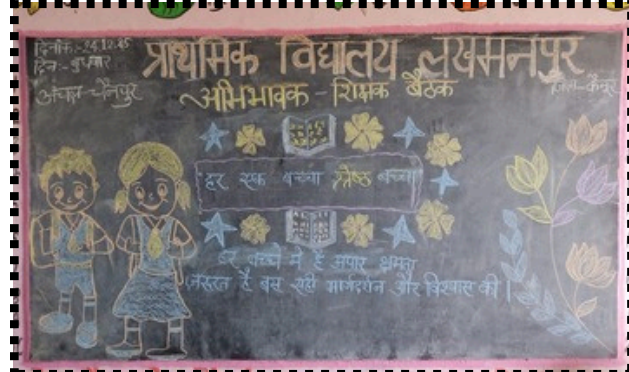 दिनांक:-24.12.25
दिन:- बुधवार
प्राथमिक विद्यालय लखमनपुर
अंचल-चैनपुर
जिला-कैमूर
अभिभावक-शिक्षक बैठक
हर एक बच्चा श्रेष्ठ बच्चा
हर बच्चे में है अपार क्षमता
जरूरत है बस सही मार्गदर्शन और विश्वास की।